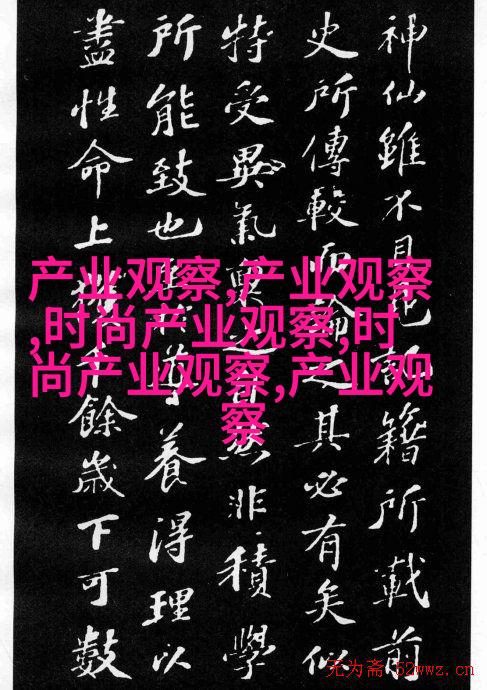 神仙雖不見記籍所載前
史所傳較而論之其必有矣似
特受異氣之自然非積學
所能致也養得理以
盡性命上千餘歲下可數
产业观察,产业观察
,时尚产业观察,时
尚产业观察,产业观
察
无为斋·52wwz.cn